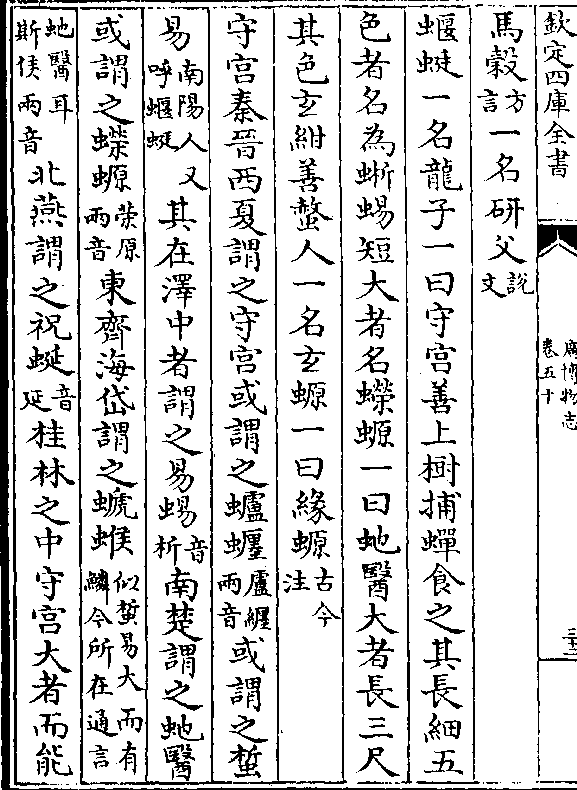 欽定四庫全書
廣博物志
卷五十
三十三
馬穀方言一名研父說文
蝘蜓一名龍子一曰守宮善上樹捕蟬食之其長細五
色者名為蜥蜴短大者名蠑螈一曰虵醫大者長三尺
其色玄紺善螫人一名玄螈一曰緣螈古今注
守宮秦晉西夏謂之守宮或謂之蠦𧔞廬纒兩音或謂之蜇
易南陽人又呼蝘蜓其在澤中者謂之易蜴音析南楚謂之虵醫
或謂之蠑螈榮原兩音東齊海岱謂之螔䗔似蜇易大而有鱗今所在通言
虵醫耳斯侯兩音北燕謂之祝蜒音延桂林之中守宮大者而能